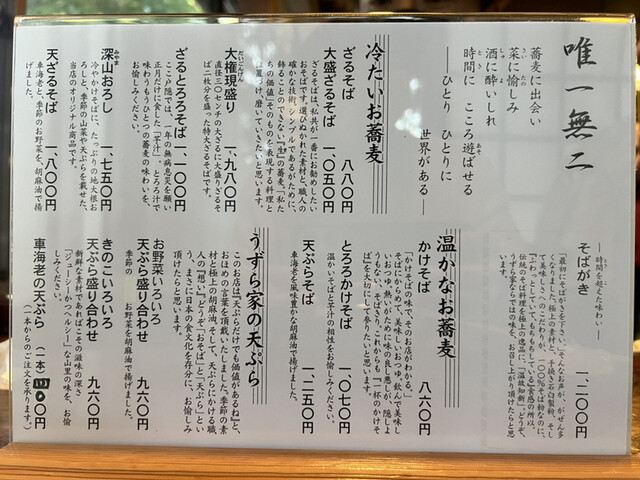 唯一無二
蕎麦に出会い
菜に愉しみ
酒に酔いしれ
時間に こころ遊ばせる
―ひとり ひとりに
世界がある―
冷たいお蕎麦
ざるそば 八八〇円
大盛ざるそば 一、〇五〇円
ざるそばは、私共が一番にお勧めしたい
おそばです。選びぬかれた素材と、職人の
確かな技術。シンプルであるがために、
飾ることのできない『生』の蕎麦。「私た
ちの価値」そのものを表現する料理と
位置づけ、磨いていきたいと思います。
大権現盛り 一、九八〇円
直径三〇センチの大ざるに大盛りざるそ
ば二枚分を盛った特大ざるそばです。
ざるとろろそば 一、一〇〇円
ここ戸隠では、一年の無病息災を願い
正月だけに食した「芋汁」。とろろ汁で
味わうもうひとつの蕎麦の味わいを、
お愉しみください。
深山おろし 一、七五〇円
冷やかけそばに、たっぷりの地大根お
ろしと季節の山菜や天ぷらを載せた、
当店のオリジナル商品です。
天ざるそば 一、八〇〇円
車海老と、季節のお野菜を、胡麻油で揚
げました。
―時間を超えた味わい―
そばがき 一、二〇〇円
「最初にそばがきを下さい。」そんなお声が、がぜん多
くなりました。極上の素材と、手挽き石臼製粉、そし
て美味しさへのこだわりが、「一〇〇%そば粉なのに、
「ふわっとしていて、もちもちしている」食感の所以。
伝統のそば料理を極上の逸品に。「温故知新」。どうぞ、
うずら家ならではの味を、お召し上がり頂けたらと思
います。
温かなお蕎麦
かけそば 八六〇円
「かけそばの味で、そのお店がわかる。」
そばにからめて、美味しいおつゆ。飲んで美味し
いおつゆ。熱いがために味の良し悪しが、隠しよ
うもない、そばだからこれからも、「一杯のかけそ
ば」を大切にして参りたいと思います。
とろろかけそば 一、〇七〇円
温かいそばと芋汁の相性をお愉しみください。
天ぷらそば 一、二五〇円
車海老を風味豊かな胡麻油で揚げました。
うずら家の天ぷら
「このお店は、天ぷらだけでも価値があるね」と、
おほめの言葉を頂戴いたしました。季節の素
材と極上の胡麻油。そして天ぷらにかける職
人の『想い』。どうぞ「おそば」と「天ぷら」とい
う、まさに日本の食文化を存分に、お愉しみ
頂けたらと思います。
お野菜いろいろ
天ぷら盛り合わせ 九六〇円
季節の お野菜を胡麻油で揚げました。
きのこいろいろ
天ぷら盛り合わせ 九六〇円
新鮮な素材であればこその滋味の深さ
「ジューシーかつヘルシー」な山里の味を、お愉
しみください。
車海老の天ぷら(一本) 四〇〇円
(一本からのご注文を承ります。)